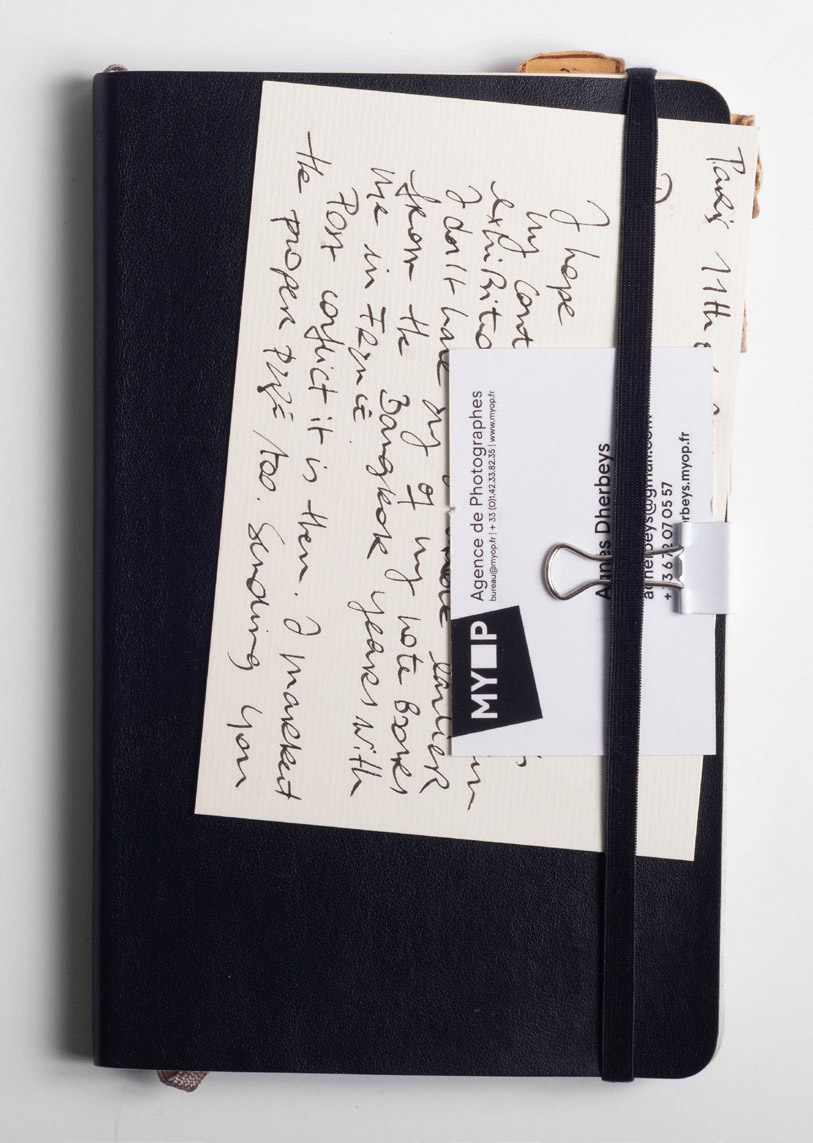 Paris 11th
I hope
my cont
exhibitio
I don't have any earlier
from the Bangkok years with
me in France.
Post conflict it is then. I marked
the proper page too. Sending you
of my note books
MYOP
Agence de Photographes
bureau@myop.fr | + 33 (0)1.42.33.82.35 | www.myop.fr
Agnes Dherbeys
adherbeys@gmail.com
07 05 57
rbeys.myop.fr